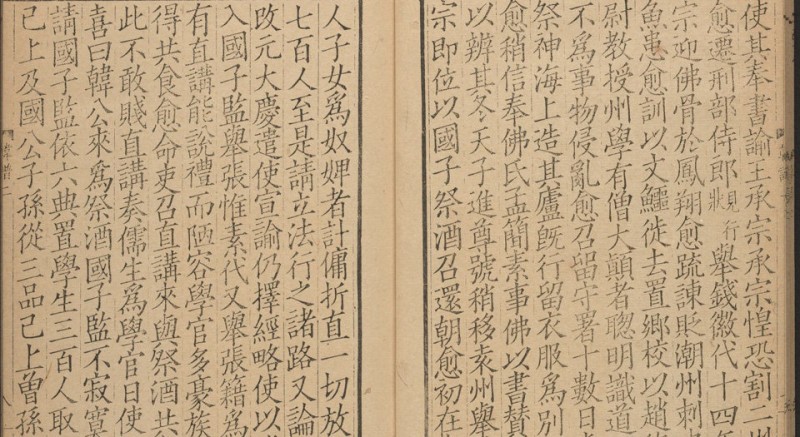 使其奉書諭王承宗承宗惶恐割二
愈遷刑部侍郎見行狀舉錢徽代十四年
宗迎佛骨於鳳翔愈疏諫貶潮州刺
魚患愈訓以文鱷徙去置鄉校以趙
尉教授州學有僧大顛者聰明識道
不爲事物侵亂愈召留守署十數日
祭神海上造其廬旣行留衣服爲別
愈稍信奉佛氏孟簡素事佛以書賛
以辨其冬天子進尊號稍移袁州舉
宗即位以國子祭酒召還朝愈初在
人子女爲奴婢者計傭折直一切放
七百人至是請立法行之諸路又論
改元大慶遣使宣諭仍擇經略使以
入國子監舉張惟素代又舉張籍爲
有直講能說禮而陋容學官多豪族
得共食愈命吏召直講來與祭酒共
此不敢賤直講奏儒生爲學官日使
喜曰韓公來爲祭酒國子監不寂寞
請國子監依六典置學生三百人取
己上及國公子孫從三品己上曾孫